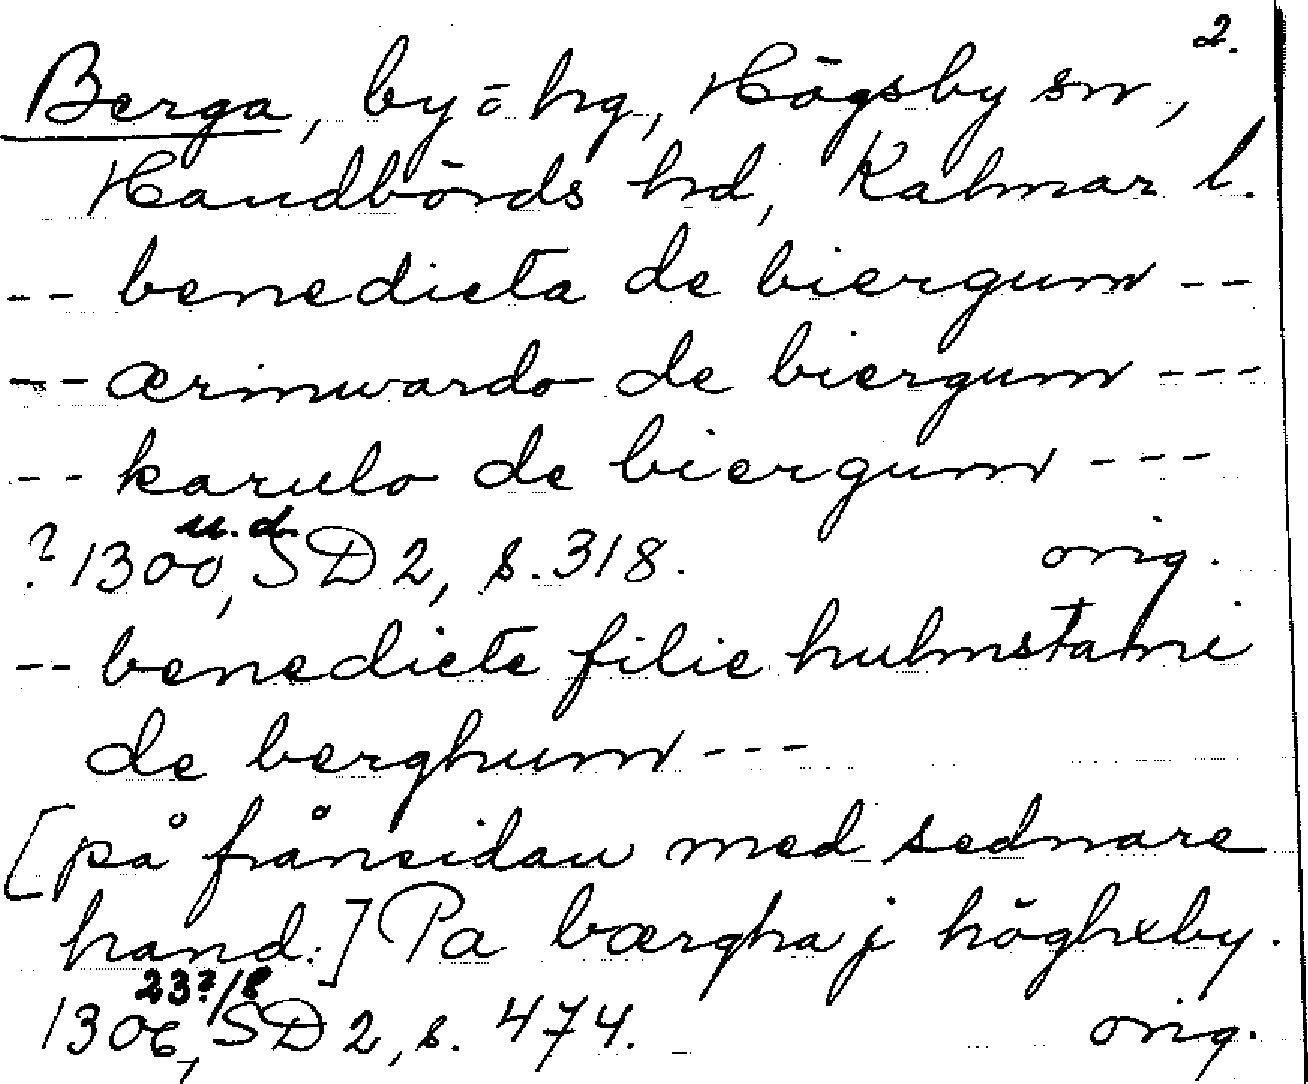 2.
Berga, by o hg, Högsby sn,
Handbörds hd, Kalmar l.
-- benedicta de biergum --
-- ærinuardo de biergum ---
-- karulo de biergum ---
u.d.
? 1300, SD 2, s. 318. orig.
-- benedicte filie hulmstami
de berghum ---
[på frånsidan med sednare
hand:] Pa bærgha j höghxby.
23?/8
1306, SD 2, s. 474. orig.